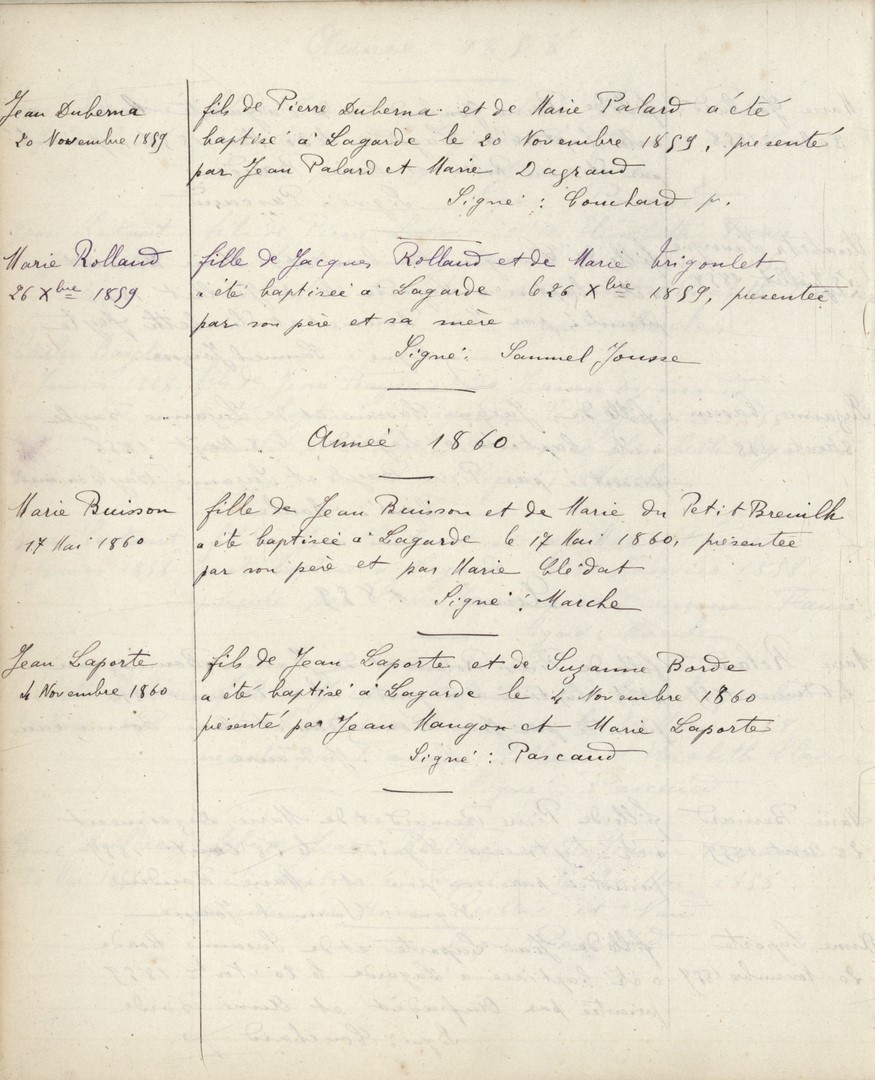 Jean Duberna
20 Novembre 1859
fils de Pierre Duberna et de Marie Palard a été
baptisé à Lagarde le 20 Novembre 1859, présenté
par Jean Palard et Marie Dagrand
Signé : Couchard p.
Marie Rolland
26 Xbre 1859
fille de Jacques Rolland et de Marie Trigoulet
a été baptisée à Lagarde le 26 Xbre 1859, présentée
par son père et sa mère
Signé : Samuel Jousse
Année 1860
Marie Buisson
17 Mai 1860
fille de Jean Buisson et de Marie du Petit Breuilh
a été baptisée à Lagarde le 17 Mai 1860, présentée
par son père et par Marie Clédat
Signé : Marche
Jean Laporte
4 Novembre 1860
fils de Jean Laporte et de Suzanne Borde
a été baptisé à Lagarde le 4 Novembre 1860
présenté par Jean Mangon et Marie Laporte
Signé : Pascaud